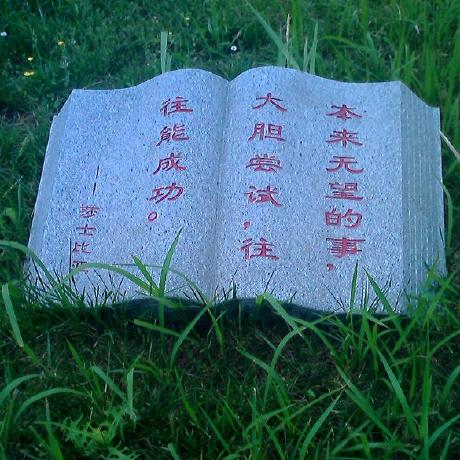 本来无望的事，
大胆尝试，往
往能成功。
——莎士比亚